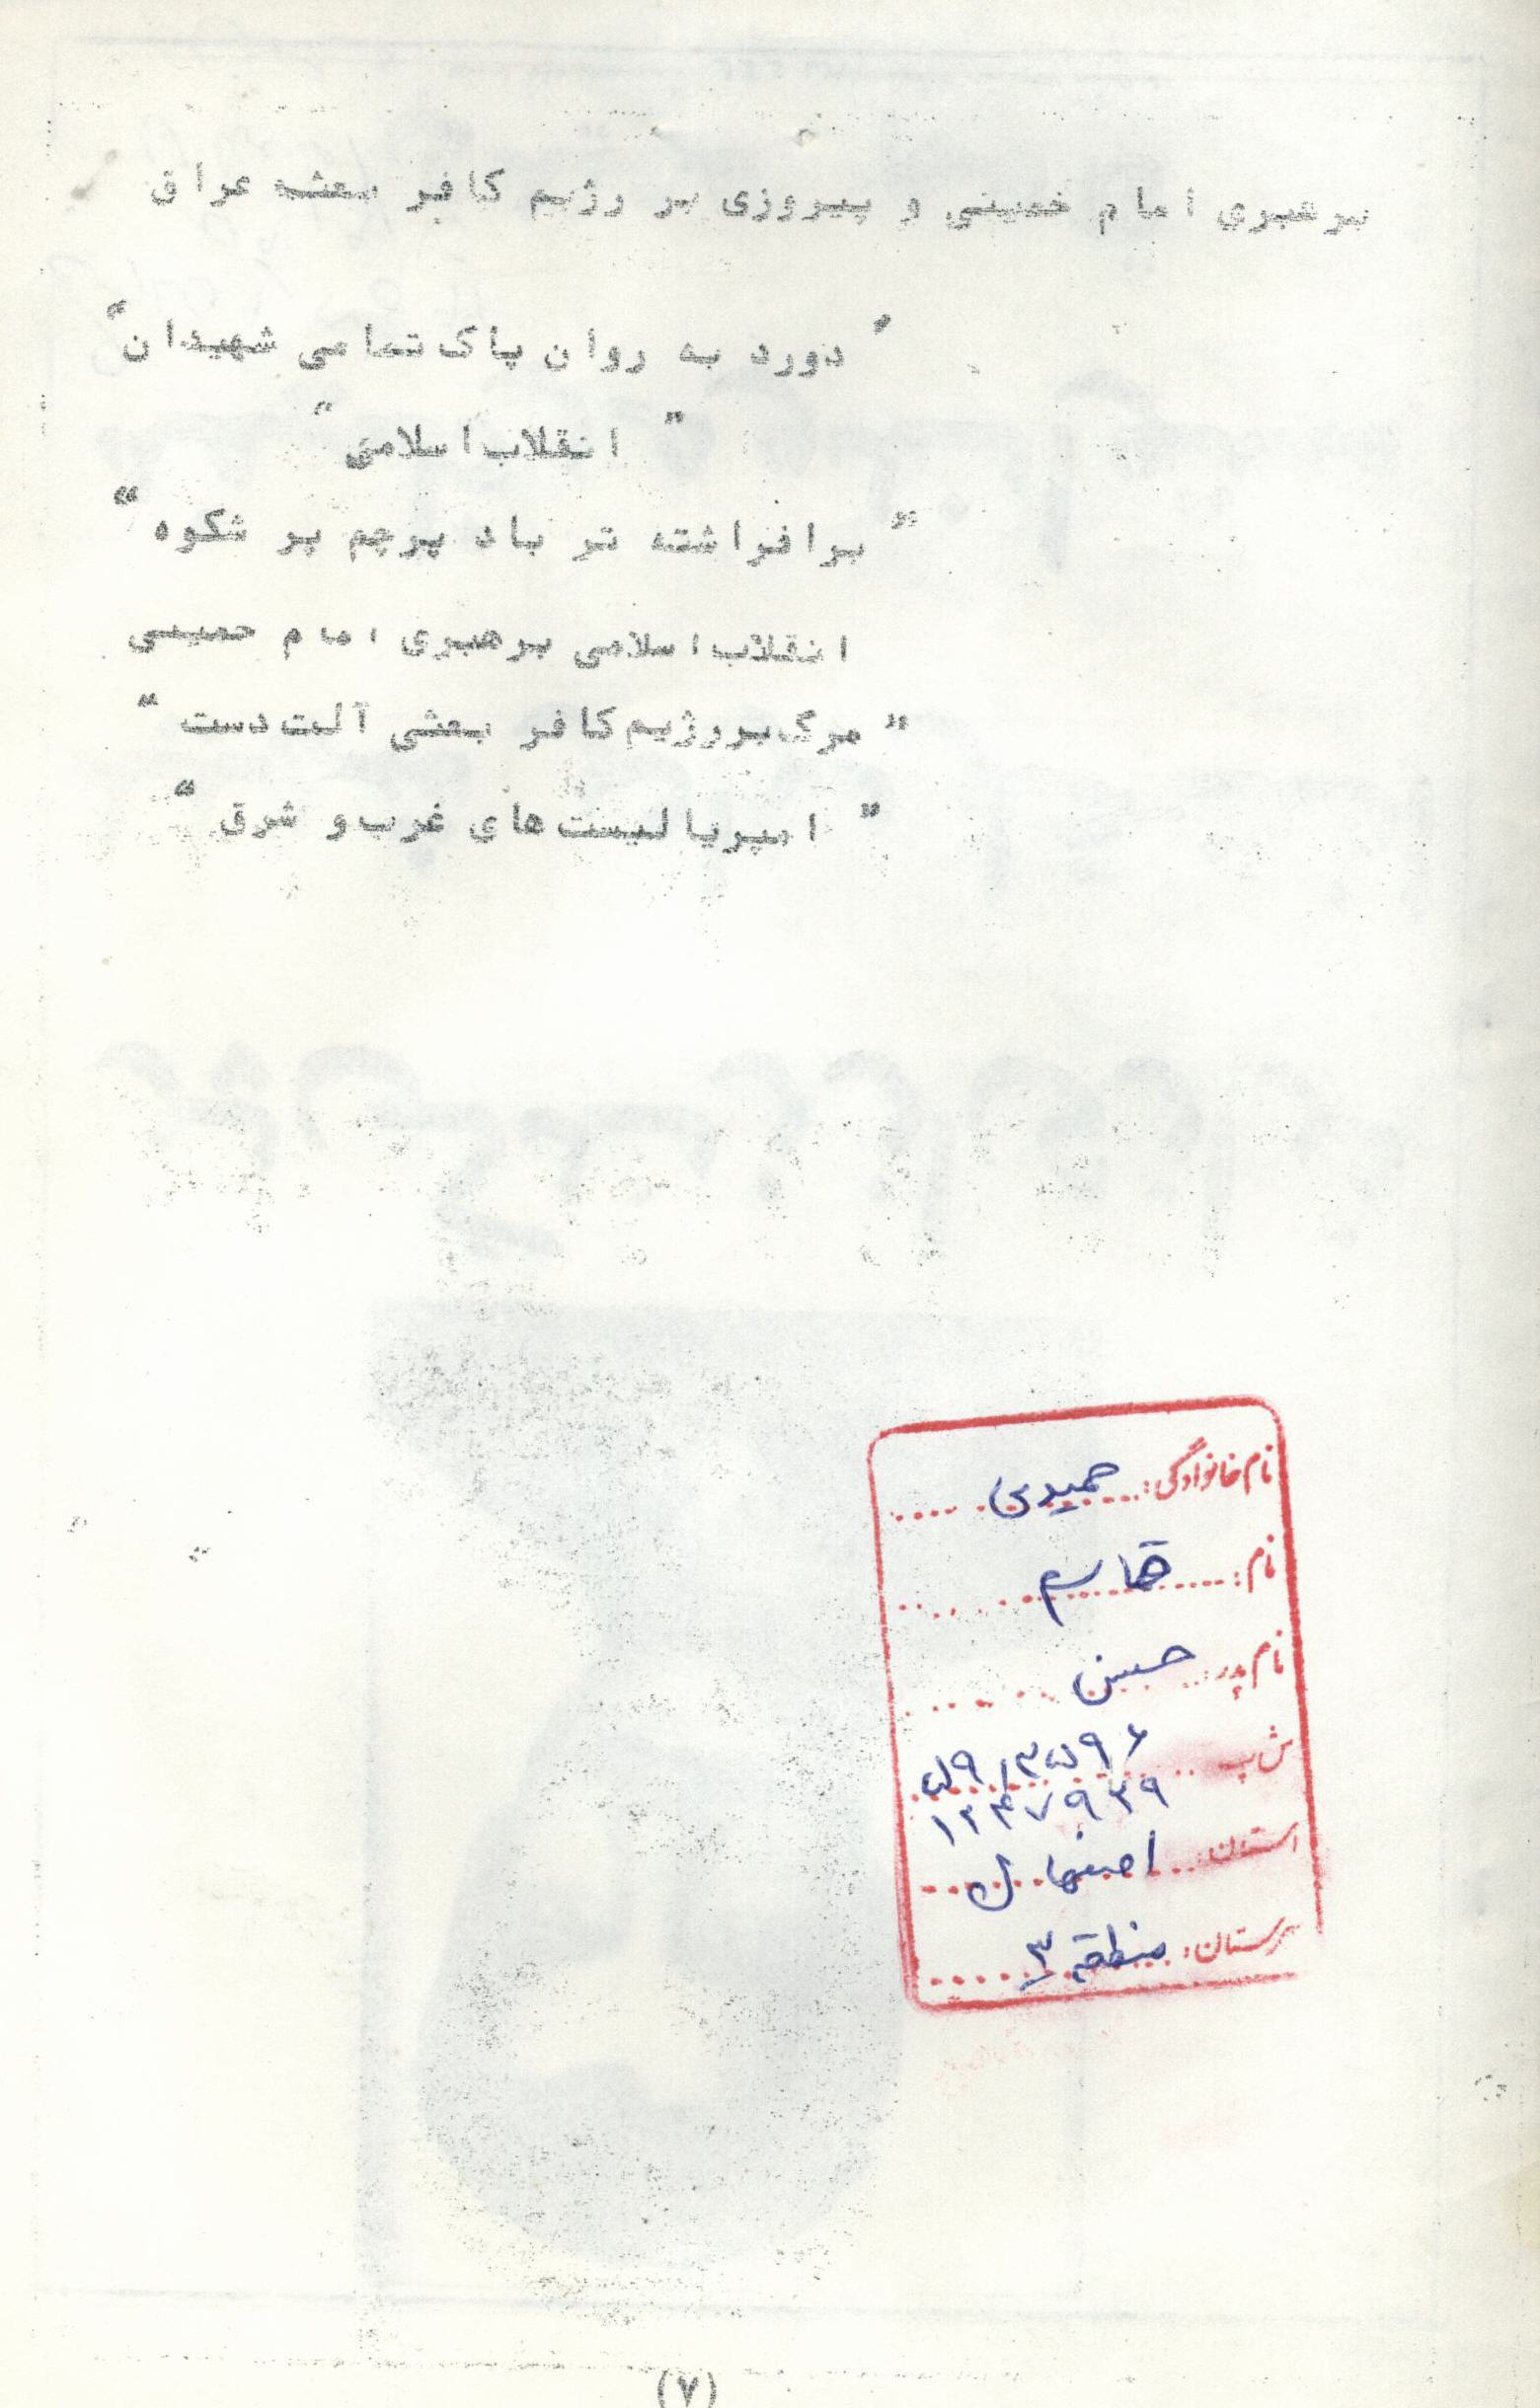 برهبری امام خمینی و پیروزی بر رژیم کافر بعثه عراق
" دورد به روان پاک تمامی شهیدان "
" انقلاب اسلامی "
" برافراشته تر باد پرچم پر شکوه "
انقلاب اسلامی برهبری امام خمینی
" مرگ بر رژیم کافر بعثی آلت دست "
" امپریالیست های غرب و شرق "
نام خانوادگی: حمیدی
نام: قاسم
نام پدر: حسین
ش پ ۵۹۱۳۵۹۶
۱۲۴۷۹۲۹
استان: اصفهان
شهرستان: منطقه ۳
(۷)